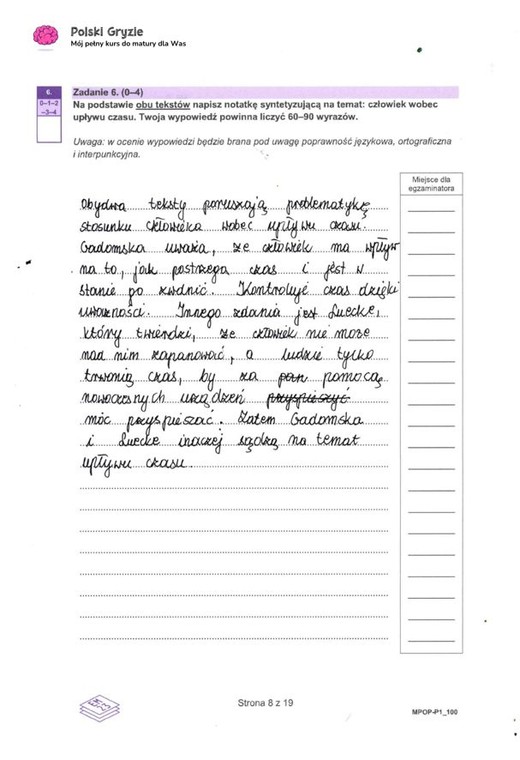 Polski Gryzie
Mój pełny kurs do matury dla Was
6.
0–1–2
–3–4
Zadanie 6. (0–4)
Na podstawie obu tekstów napisz notatkę syntetyzującą na temat: człowiek wobec
upływu czasu. Twoja wypowiedź powinna liczyć 60–90 wyrazów.
Uwaga: w ocenie wypowiedzi będzie brana pod uwagę poprawność językowa, ortograficzna
i interpunkcyjna.
Miejsce dla
egzaminatora
Obydwa teksty poruszają problematykę
stosunku człowieka wobec upływu czasu.
Gadomska uważa, że człowiek ma wpływ
na to, jak postrzega czas i jest w
stanie go
Kontroluje czas dzięki
uważności. Innego zdania jest Luecke,
który twierdzi, że człowiek nie może
nad nim zapanować, a ludzie tylko
trwonią czas, by za pom pomocą
nowoczesnych urządzeń przyspieszyć
móc przyspieszać. Zatem Gadomska
i Luecke inaczej sądzą na temat
upływu czasu.
Strona 8 z 19
MPOP-P1_100